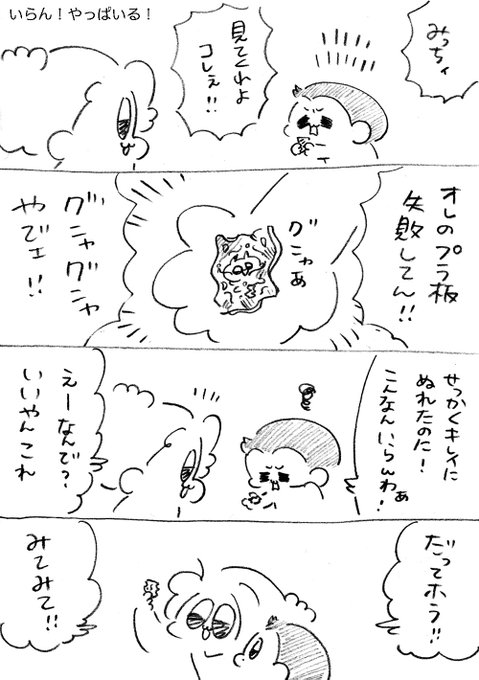 いらん!やっぱいる!
みっちィ
見てくれよ
コレぇ!!
オレのプラ板
失敗してん!!
グニャぁ
グニャグニャ
やでェ!!
せっかくキレイに
ぬれたのに!
こんなんいらんわぁ!
えーなんで?
いいやんこれ
だってホラ!!
みてみて!!